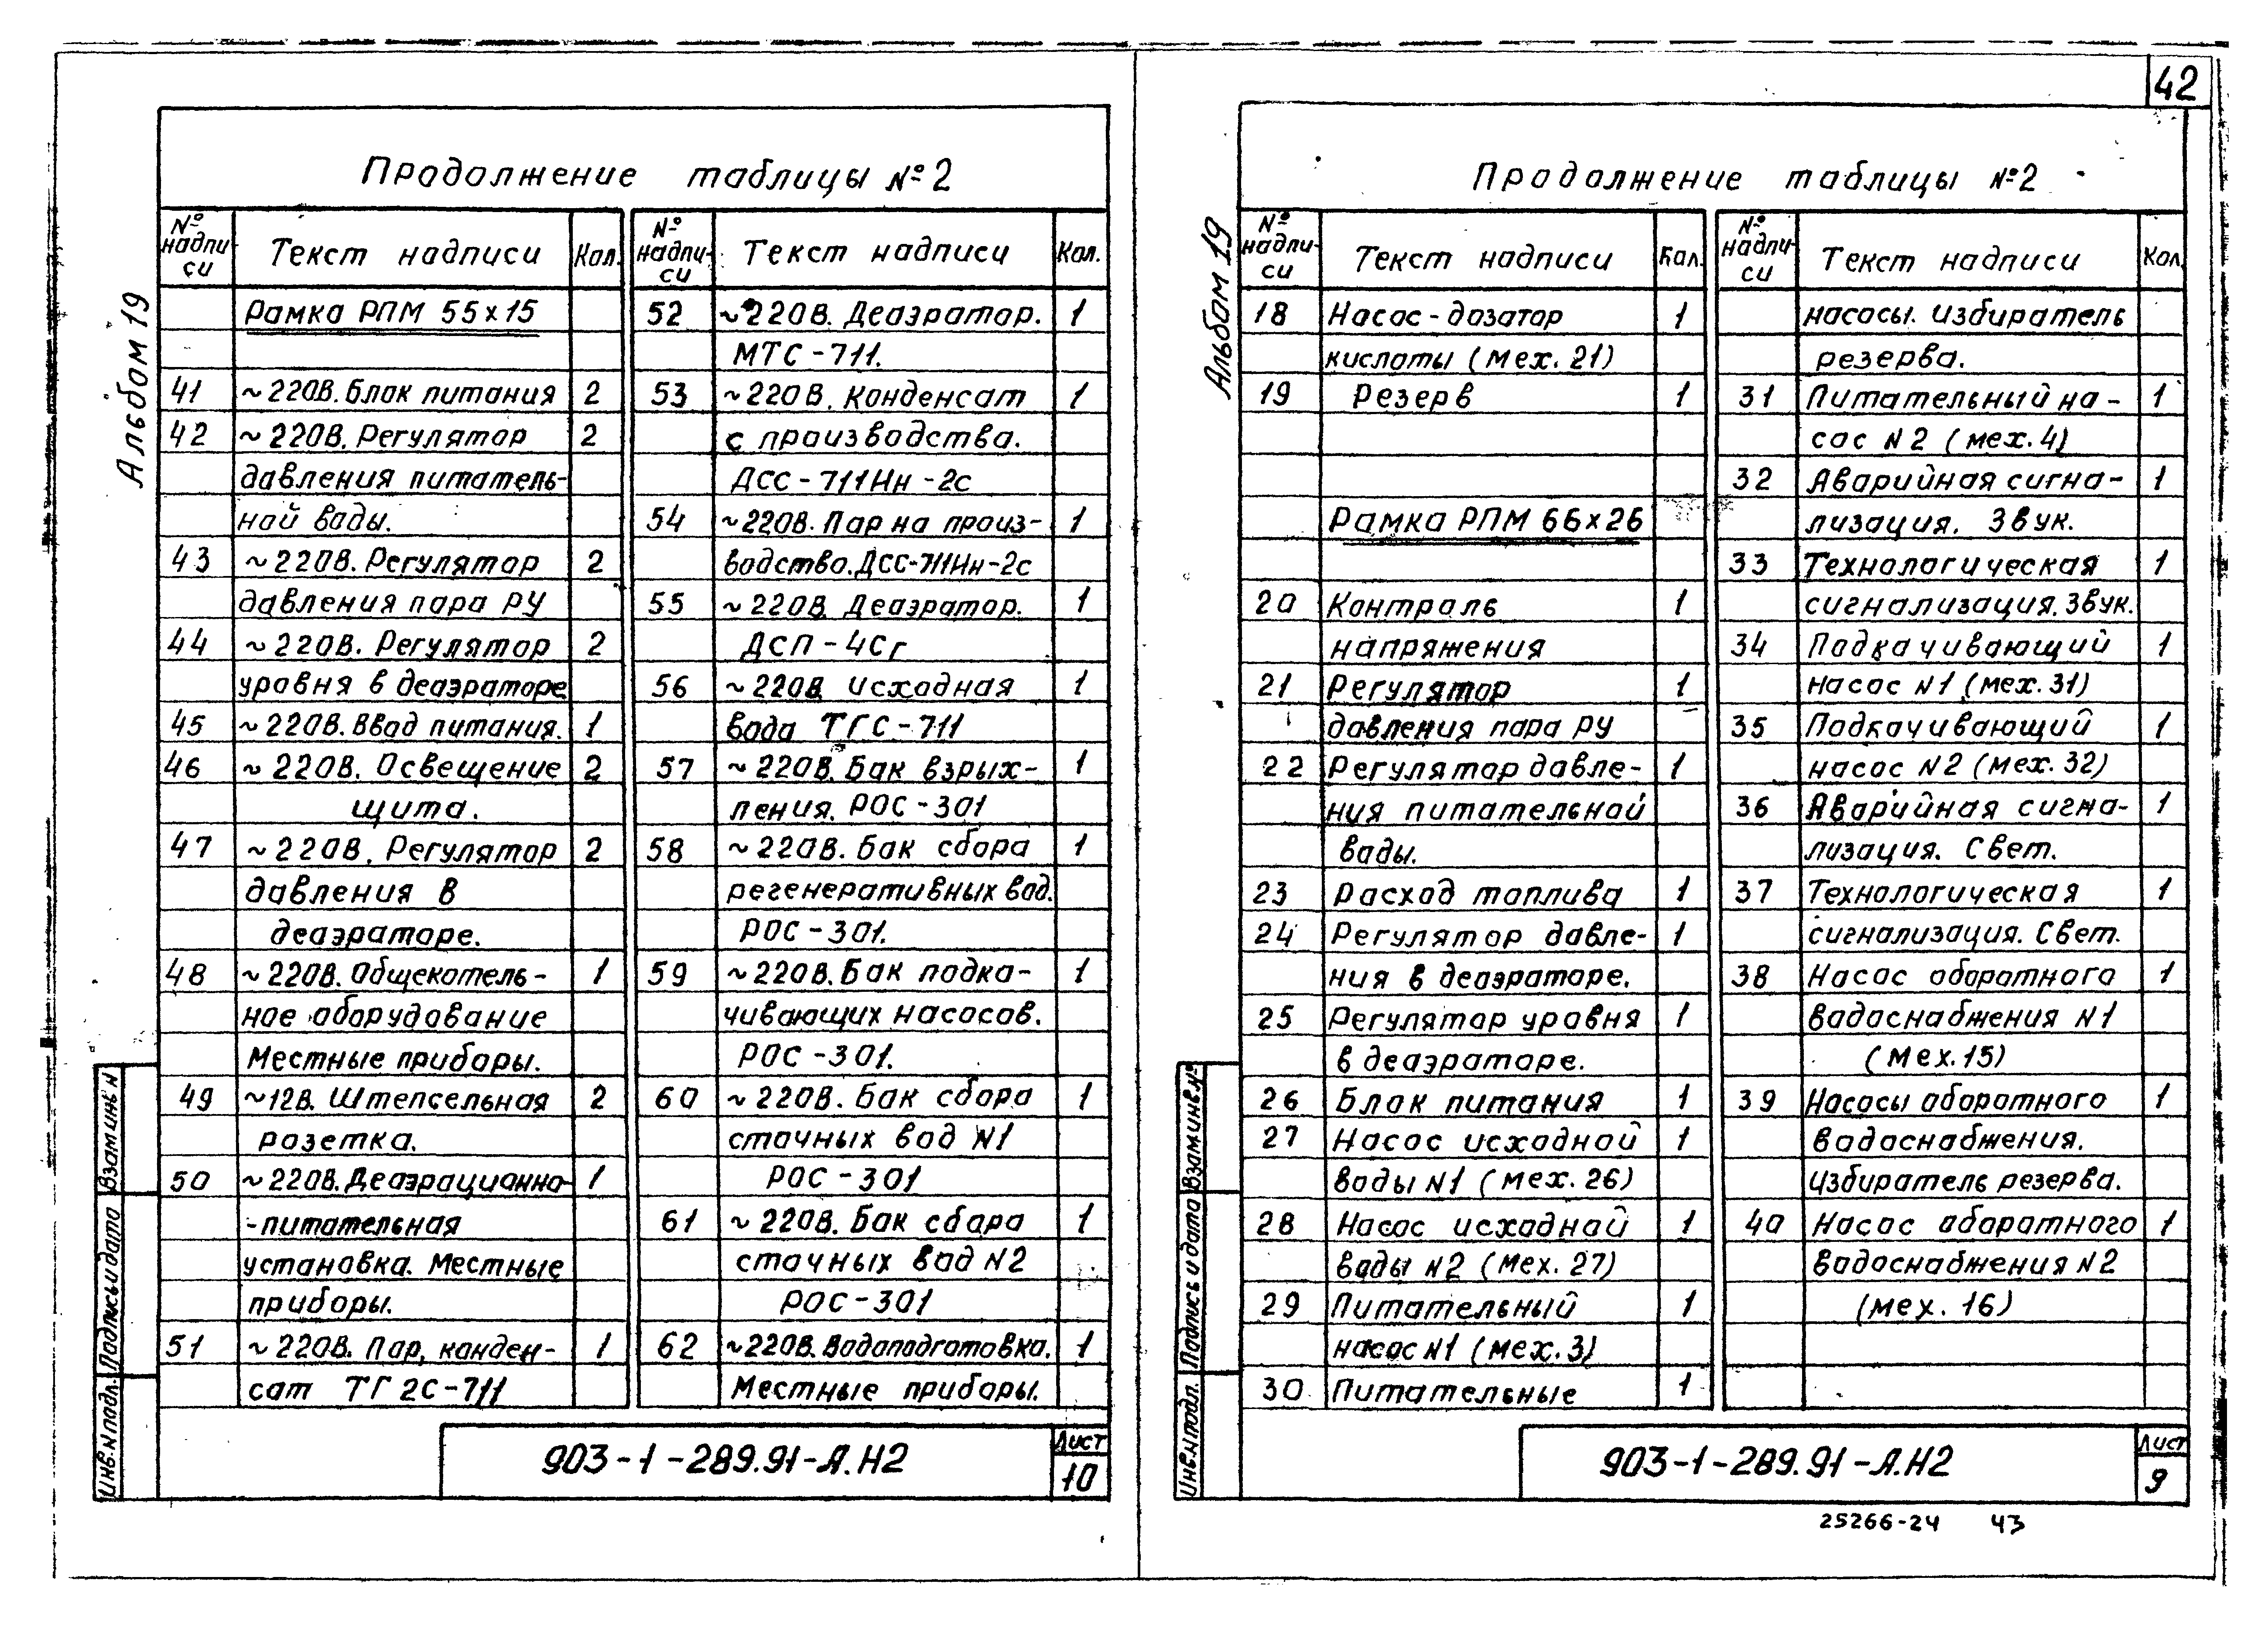 42
Альбом 19
Продолжение таблицы №2
№ надпи си
Текст надписи
Кол.
№ надпи- си
Текст надписи
Кол.
Рамка РПМ 55х15
41 ~220В. Блок питания 2
42 ~220В. Регулятор 2
давления питатель-
ной воды.
43 ~220В. Регулятор 2
давления пара РУ
44 ~220В. Регулятор 2
уровня в деаэраторе
45 ~220В. Ввод питания. 1
46 ~220В. Освещение 2
щита.
47 ~220В. Регулятор 2
давления в
деаэраторе.
48 ~220В. Общекотель- 1
ное оборудование
Местные приборы.
49 ~12В. Штепсельная 2
розетка.
50 ~220В. Деаэрационно- 1
-питательная
установка. Местные
приборы.
51 ~220В. Пар, конден- 1
сат ТГ2С-711
52 ~220В. Деаэратор. 1
МТС-711.
53 ~220В. Конденсат 1
с производства.
ДСС-711Ин-2с
54 ~220В. Пар на произ- 1
водство. ДСС-711Ин-2с
55 ~220В. Деаэратор. 1
ДСП-4Сг
56 ~220В. Исходная 1
вода ТГС-711
57 ~220В. Бак взрых- 1
ления. РОС-301
58 ~220В. Бак сбора 1
регенеративных вод.
РОС-301.
59 ~220В. Бак подка- 1
чивающих насосов.
РОС-301.
60 ~220В. Бак сбора 1
сточных вод N1
РОС-301
61 ~220В. Бак сбора 1
сточных вод N2
РОС-301
62 ~220В. Водоподготовка. 1
Местные приборы.
903-1-289.91-А.Н2
Лист
10
Инв.N подл.
Подпись и дата
Взам инв N
Альбом 19
Продолжение таблицы №2
№ надпи- си
Текст надписи
Кол.
№ надпи- си
Текст надписи
Кол.
18 Насос-дозатор 1
кислоты (мех. 21)
19 Резерв 1
Рамка РПМ 66х26
20 Контроль 1
напряжения
21 Регулятор 1
давления пара РУ
22 Регулятор давле- 1
ния питательной
воды.
23 Расход топлива 1
24 Регулятор давле- 1
ния в деаэраторе.
25 Регулятор уровня 1
в деаэраторе.
26 Блок питания 1
27 Насос исходной 1
воды N1 (мех. 26)
28 Насос исходной 1
воды N2 (мех. 27)
29 Питательный 1
насос N1 (мех. 3)
30 Питательные 1
насосы. Избиратель
резерва.
31 Питательный на- 1
сос N2 (мех. 4)
32 Аварийная сигна- 1
лизация. Звук.
33 Технологическая 1
сигнализация. Звук.
34 Подкачивающий 1
насос N1 (мех. 31)
35 Подкачивающий 1
насос N2 (мех. 32)
36 Аварийная сигна- 1
лизация. Свет.
37 Технологическая 1
сигнализация. Свет.
38 Насос оборотного 1
водоснабжения N1
(мех. 15)
39 Насосы оборотного 1
водоснабжения.
Избиратель резерва.
40 Насос оборотного 1
водоснабжения N2
(мех. 16)
903-1-289.91-А.Н2
Лист
9
Инв.N подл.
Подпись и дата
Взам инв.№
25266-24 43